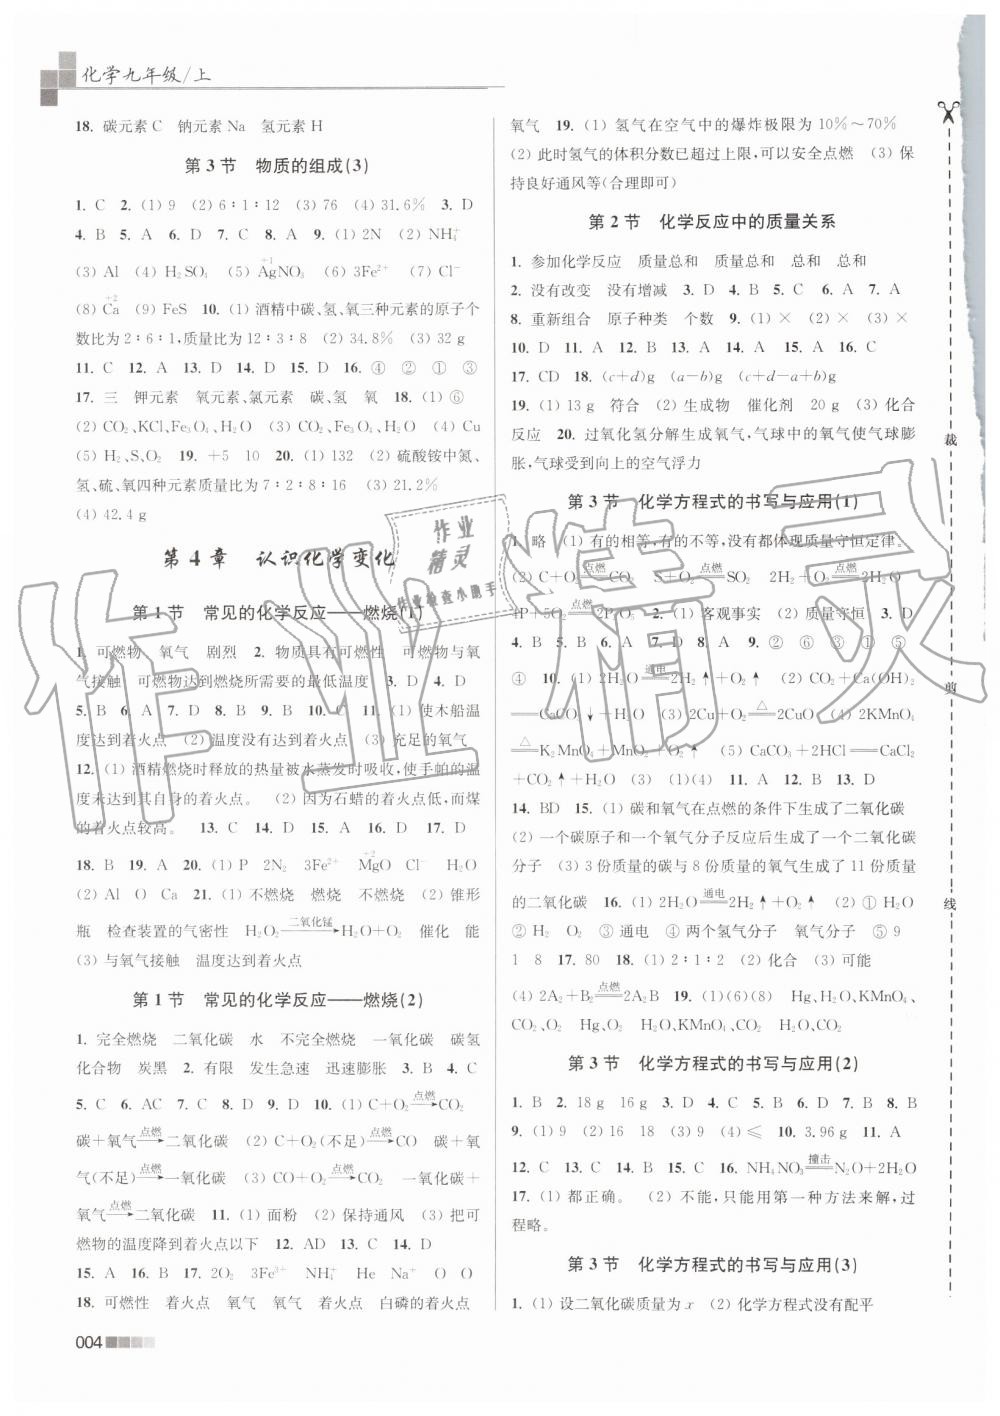 化学九年级/上
18. 碳元素C 钠元素Na 氢元素H
第3节 物质的组成(3)
1. C 2. (1) 9 (2) 6∶1∶12 (3) 76 (4) 31.6% 3. D
4. B 5. A 6. D 7. C 8. A 9. (1) 2N (2) NH₄⁺
(3) Al (4) H₂SO₄ (5) A͏gNO₃ +1 (6) 3Fe²⁺ (7) Cl⁻
(8) Ca +2 (9) FeS 10. (1) 酒精中碳、氢、氧三种元素的原子个
数比为2∶6∶1,质量比为12∶3∶8 (2) 34.8% (3) 32 g
11. C 12. A 13. A 14. D 15. D 16. ④ ② ① ③
17. 三 钾元素 氧元素、氯元素 碳、氢 氧 18. (1) ⑥
(2) CO₂、KCl、Fe₂O₃、H₂O (3) CO₂、Fe₂O₃、H₂O (4) Cu
(5) H₂、S、O₂ 19. +5 10 20. (1) 132 (2) 硫酸铵中氮、
氢、硫、氧四种元素质量比为7∶2∶8∶16 (3) 21.2%
(4) 42.4 g
第4章 认识化学变化
第1节 常见的化学反应——燃烧(1)
1. 可燃物 氧气 剧烈 2. 物质具有可燃性 可燃物与氧
气接触 可燃物达到燃烧所需要的最低温度 3. D 4. D
5. B 6. A 7. D 8. B 9. B 10. C 11. (1) 使木船温
度达到着火点 (2) 温度没有达到着火点 (3) 充足的氧气
12. (1) 酒精燃烧时释放的热量被水蒸发时吸收,使手帕的温
度未达到其自身的着火点。 (2) 因为石蜡的着火点低,而煤
的着火点较高。 13. C 14. D 15. C 16. D 17. D
18. B 19. A 20. (1) P 2N₂ 3Fe²⁺ MgO +2 Cl⁻ H₂O
(2) Al O Ca 21. (1) 不燃烧 燃烧 不燃烧 (2) 锥形
瓶 检查装置的气密性 H₂O₂ 二氧化锰→ H₂O+O₂ 催化 能
(3) 与氧气接触 温度达到着火点
第1节 常见的化学反应——燃烧(2)
1. 完全燃烧 二氧化碳 水 不完全燃烧 一氧化碳 碳氢
化合物 炭黑 2. 有限 发生急速 迅速膨胀 3. B 4. C
5. C 6. AC 7. C 8. D 9. D 10. (1) C+O₂ 点燃→ CO₂
碳+氧气 点燃→ 二氧化碳 (2) C+O₂(不足) 点燃→ CO 碳+氧
气(不足) 点燃→ 一氧化碳 (3) CO+O₂ 点燃→ CO₂ 一氧化碳+
氧气 点燃→ 二氧化碳 11. (1) 面粉 (2) 保持通风 (3) 把可
燃物的温度降到着火点以下 12. AD 13. C 14. D
15. A 16. B 17. 2O₂ 3Fe³⁺ NH₄⁺ He Na⁺ O O
18. 可燃性 着火点 氧气 氧气 着火点 白磷的着火点
004
氧气 19. (1) 氢气在空气中的爆炸极限为10%～70%
(2) 此时氢气的体积分数已超过上限,可以安全点燃 (3) 保
持良好通风等(合理即可)
第2节 化学反应中的质量关系
1. 参加化学反应 质量总和 质量总和 总和 总和
2. 没有改变 没有增减 3. D 4. B 5. C 6. A 7. A
8. 重新组合 原子种类 个数 9. (1) × (2) × (3) ×
10. D 11. A 12. B 13. A 14. A 15. A 16. C
17. CD 18. (c+d)g (a-b)g (c+d-a+b)g
19. (1) 13 g 符合 (2) 生成物 催化剂 20 g (3) 化合
反应 20. 过氧化氢分解生成氧气,气球中的氧气使气球膨
胀,气球受到向上的空气浮力
第3节 化学方程式的书写与应用(1)
1. 略 (1) 有的相等,有的不等,没有都体现质量守恒定律。
(2) C+O₂ 点燃═ CO₂ S+O₂ 点燃═ SO₂ 2H₂+O₂ 点燃═ 2H₂O
4P+5O₂ 点燃═ 2P₂O₅ 2. (1) 客观事实 (2) 质量守恒 3. D
4. B 5. B 6. A 7. D 8. A 9. ① ② ③ ① ⑤
④ 10. (1) 2H₂O 通电═ 2H₂↑+O₂↑ (2) CO₂+Ca(OH)₂
═CaCO₃↓+H₂O (3) 2Cu+O₂ △═ 2CuO (4) 2KMnO₄
△═ K₂MnO₄+MnO₂+O₂↑ (5) CaCO₃+2HCl═CaCl₂
+CO₂↑+H₂O (3) (1)(4) 11. A 12. B 13. D
14. BD 15. (1) 碳和氧气在点燃的条件下生成了二氧化碳
(2) 一个碳原子和一个氧气分子反应后生成了一个二氧化碳
分子 (3) 3份质量的碳与8份质量的氧气生成了11份质量
的二氧化碳 16. (1) 2H₂O 通电═ 2H₂↑+O₂↑ (2) ① H₂O
② H₂ O₂ ③ 通电 ④ 两个氢气分子 氧气分子 ⑤ 9
1 8 17. 80 18. (1) 2∶1∶2 (2) 化合 (3) 可能
(4) 2A₂+B₂ 点燃═ 2A₂B 19. (1)(6)(8) Hg、H₂O、KMnO₄、
CO₂、O₂ Hg、O₂ H₂O、KMnO₄、CO₂ H₂O、CO₂
第3节 化学方程式的书写与应用(2)
1. B 2. 18 g 16 g 3. D 4. C 5. B 6. D 7. B 8. B
9. (1) 9 (2) 16 18 (3) 9 (4) ≤ 10. 3.96 g 11. A
12. C 13. C 14. A 15. C 16. NH₄NO₃ 撞击═ N₂O+2H₂O
17. (1) 都正确。 (2) 不能,只能用第一种方法来解,过
程略。
第3节 化学方程式的书写与应用(3)
1. (1) 设二氧化碳质量为x (2) 化学方程式没有配平
裁
剪
线
作业精灵
作业
精灵
作业检查小助手